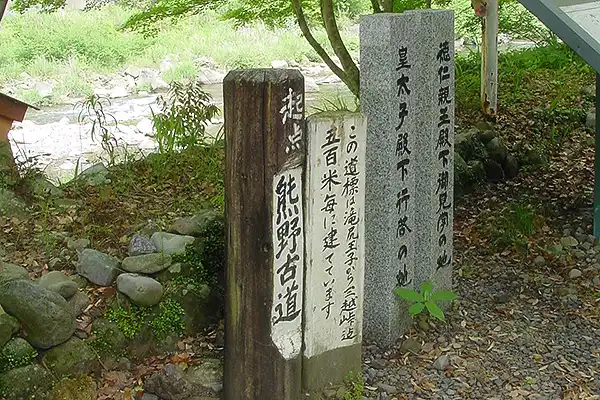 徳仁親王殿下御見学の地
皇太子殿下行啓の地
この道標は滝尻王子から三越峠迄
五百米毎に建てています
起点
熊野古道